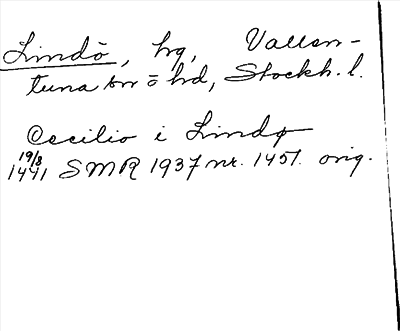 Lindö, hg, Vallen-
tuna sn o hd, Stockh. l.
Cecilio i Lindø
19/8
1441 SMR 1937 nr. 1451. orig.